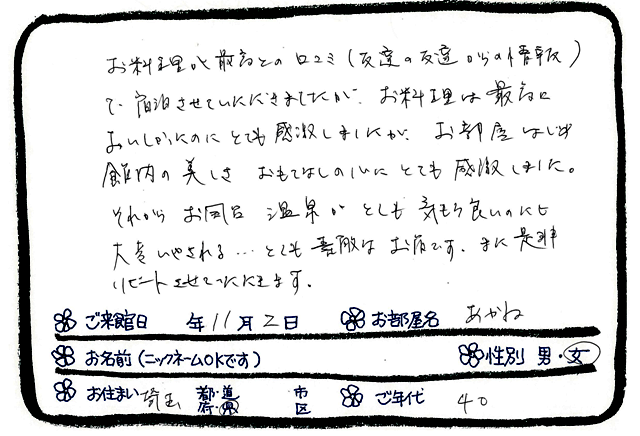 お料理が最高との口コミ(友達の友達からの情報)
で宿泊させていただきましたが、お料理は最高に
おいしかったのにとても感激しましたが、お部屋はじめ
館内の美しさ おもてなしの心にとても感激しました。
それから お風呂 温泉が とても 気もち良いのにも
大変いやされる…とても素敵な お宿です。また是非
リピートさせていただきます。
ご来館日 年 11月 2日 お部屋名 あかね
お名前(ニックネームOKです) 性別 男・女
お住まい 埼玉 都・道 府・県 市 区 ご年代 40